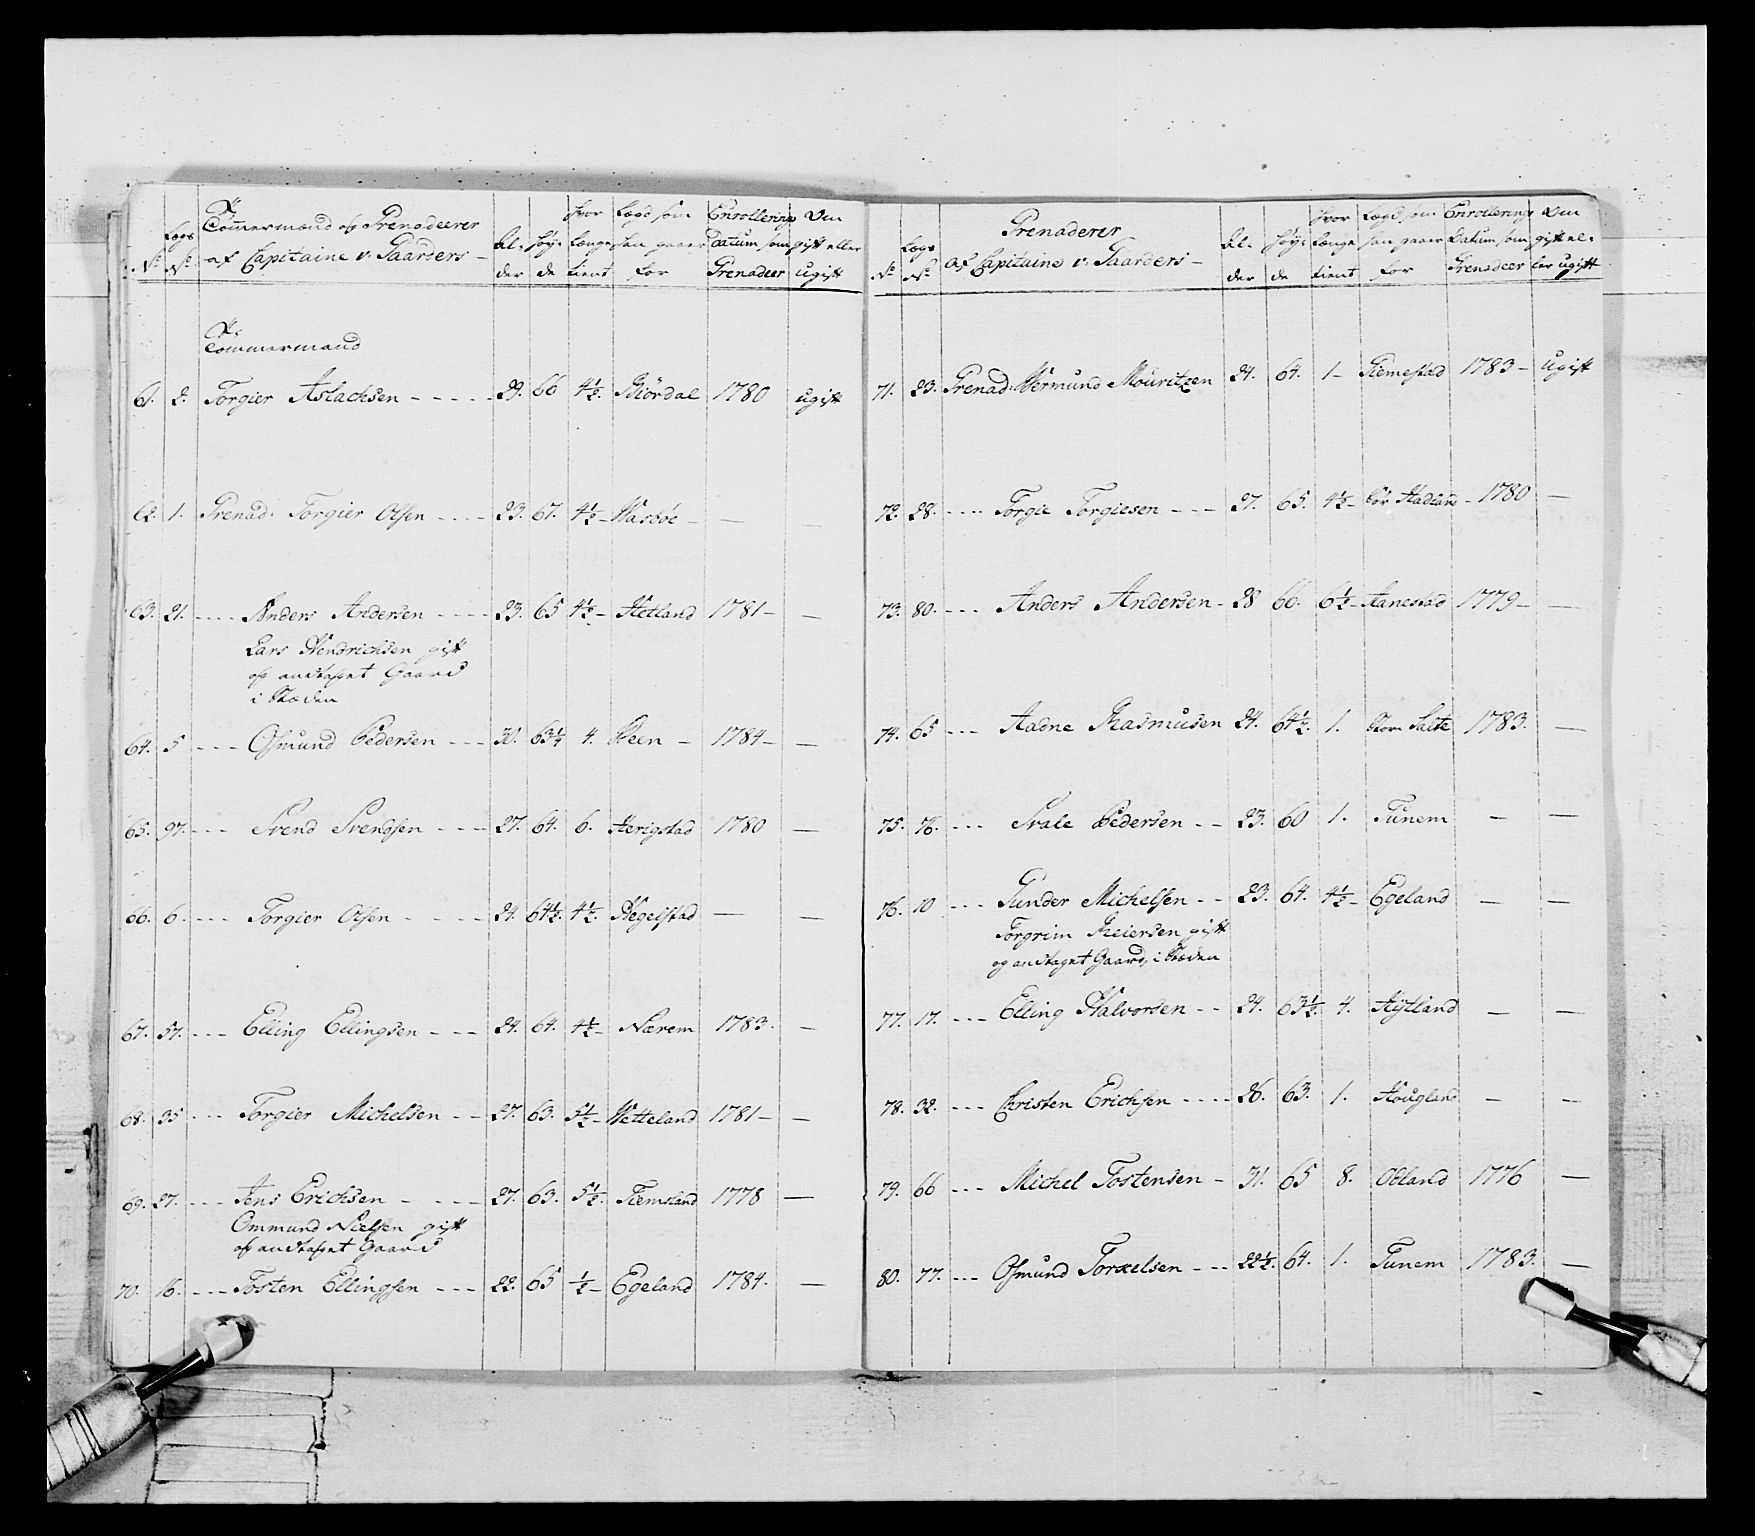 Nº
Lægs Nº
Tømmermænd og Grenadeerer af Capitaine v: Gaarders
Al-der
Høy-de
Hvor længe tient
Lægd som han gaaer for
Enrollerings Datum som Grenadeer
Om gift eller ugift
Tømmermænd
61. 2. Torgier Aslachsen ----- 29. 66 4½. Biördal 1780 ugift
62. 1. Grenad: Torgier Olsen ---- 23. 67. 4½- Wasböe - — —
63. 21. ---- Anders Andersen ---- 23. 65 4½- Hetland 1781- —
Lars Hendrichsen gift
og andtaget Gaard
i Stæden
64. 5 --- Osmund Pedersen --- 30. 63¼ 4. Reen - 1784- —
65. 97. --- Svend Svendsen --- 27. 64. 6. Herigstad 1780 —
66. 6. --- Torgier Olsen ---- 24. 64½. 4½. Hegelstad — —
67. 57. --- Elling Ellingsen --- 24. 64. 4½- Nærem 1783. —
68. 35 --- Torgier Michelsen -- 27. 63. 5½- Wetteland 1781- —
69. 27. --- Jens Erichsen ---- 27. 63. 5½. Tiemsland 1778 —
Ommund Nielsen gift
og andtaget Gaard
70. 16. --- Tosten Ellingsen --- 22. 65 ½- Egeland 1784. —
Nº
Lægs Nº
Grenaderer af Capitaine v: Gaarders-
Al-der
Høy-de
Hvor længe tient
Lægd som han gaaer for
Enrollerings Datum som Grenadeer
Om gift el-ler ugift
71. 23. Grenad: Wermund Mouritzen 24. 64. 1- Giemestad 1783- Ugift
72. 28. ---- Torgie Torgiesen --- 27. 65. 4½- Hadland - 1780 —
73. 80. ---- Anders Andersen - 28 66. 6½- Aanestad 1779- —
74. 65 --- Aadne Rasmusen 24. 64½. 1. Store Salte 1783. —
75. 76. --- Svale Pedersen -- 23. 60 1. Tunem — —
76. 10 --- Gunder Michelsen -- 23. 64. 4½- Egeland — —
Torgrim Reiersen gift
og andtaget Gaard, i Stæden
77. 17. --- Elling Halvorsen -- 24. 63½ 4. Høÿland — —
78. 32. --- Christen Erichsen ---- 26. 63. 1. Hougland — —
79. 66 --- Michel Tostensen - 31. 65 8. Odland 1776 —
80. 77. --- Osmund Torkelsen --- 22½. 64. 1. Tunem 1783. —